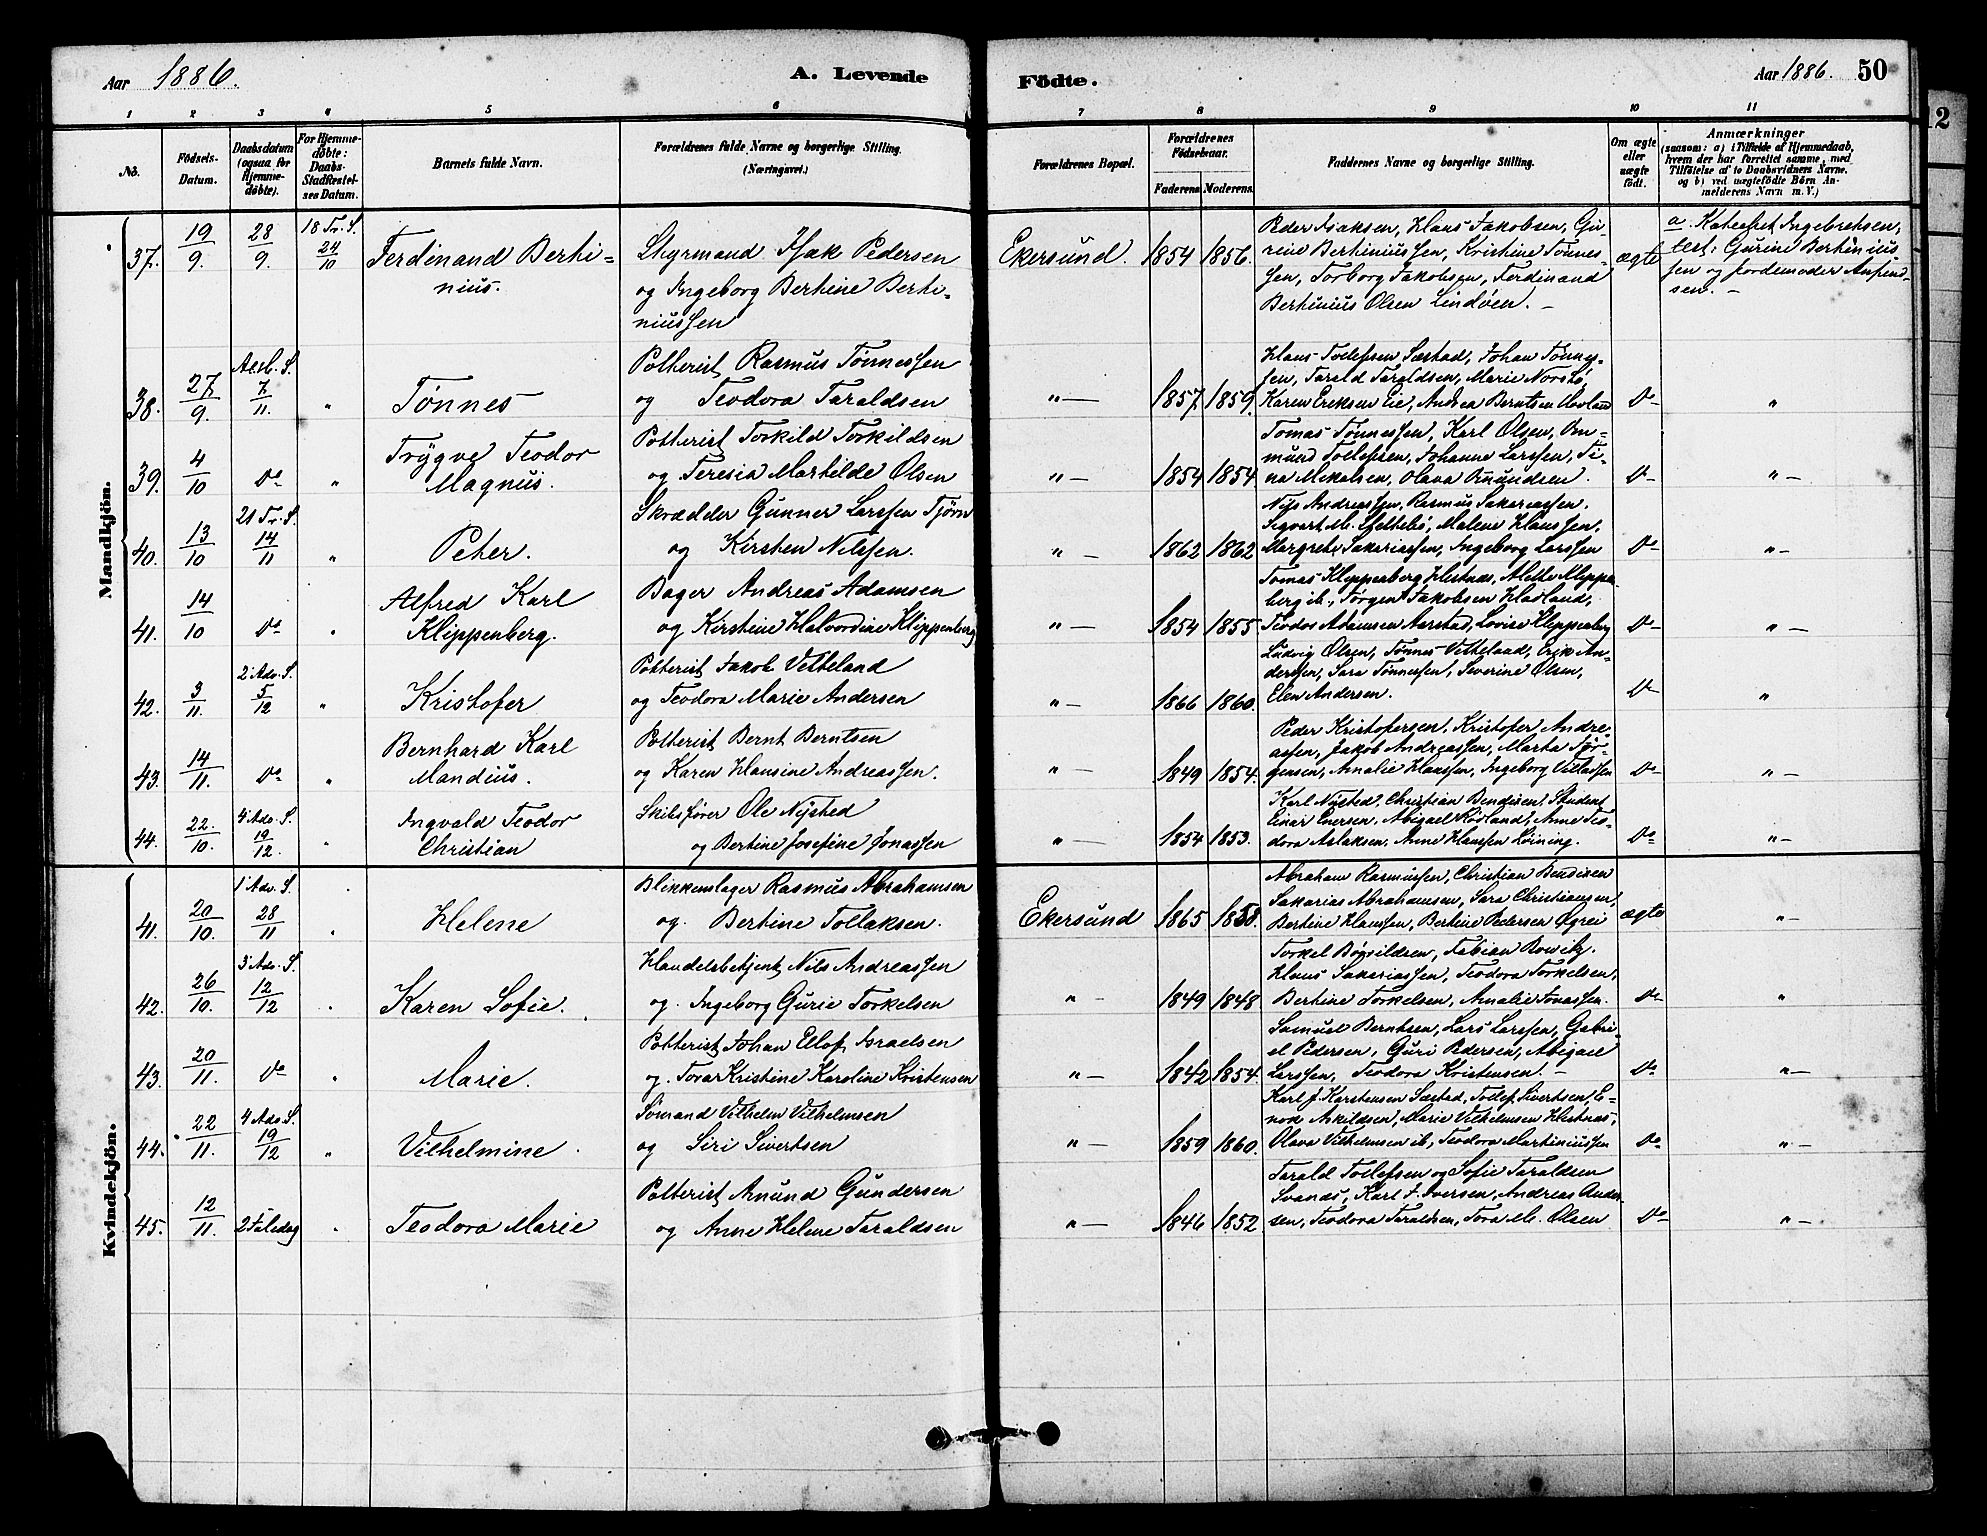 Aar 1886.
A. Levende
Fødte.
Aar 1886. 50
12
1 2 3 4 5 6 7 8 9 10 11
No.
Fødsels-
Datum.
Daabsdatum
(ogsaa for
Hjemme-
døbte).
For Hjemme-
døbte:
Daabs-
Stadfæstel-
ses Datum.
Barnets fulde Navn.
Forældrenes fulde Navne og borgerlige Stilling.
(Næringsvei.)
Forældrenes Bopæl.
Forældrenes
Fødselsaar.
Faderens. Moderens.
Faddernes Navne og borgerlige Stilling.
Om ægte
eller
uægte
født.
Anmærkninger
(saasom: a) i Tilfælde af Hjemmedaab,
hvem der har forrettet samme, med
Tilføielse af to Daabsvidners Navne,
og b) ved uægtefødte Børn An-
melderens Navn m. V.)
Mandkjön.
37. 19/9. 28/9. 18 Tr. S. 24/10
Ferdinand Berti-
nius.
Styrmand Isak Pedersen
og Ingeborg Bertine Berti-
niussen
Ekersund. 1854 1856.
Peder Isaksen, Hans Jakobsen, Gu-
rine Bertiniussen, Kristine Tønnes-
sen, Torborg Jakobsen, Ferdinand
Bertinius Olsen Lindøen. –
ægte
a. Kateket Ingebretsen,
test: Gurine Bertinius-
sen og jordemoder
sen. –
38. 27/9. 7/11. "
Tønnes
Potterist Rasmus Tønnessen
og Teodora Taraldsen
" — 1857. 1859.
Hans Tollefsen Sæstad, Johan Tønnes-
sen, Tarald Taraldsen, Marie Norstø,
Karen Eriksen Eie, Andrea Berntsen Hovland
Do "
39. 4/10 Do "
Trygve Teodor
Magnus.
Potterist Torkild Torkildsen
og Teresia Martilde Olsen
" — 1854 1854
Tomas Tønnessen, Karl Olsen, Om-
mund Tollefsen, Johanne Larssen, Ti-
na Mikalsen, Olava Omundsen.
Do " —
40. 13/10 21 Tr. S. 14/11 "
Peter.
Skrædder Gunner Larssen Tjørn
og Kirsten Nilssen.
" — 1862 1862
Nils Andreassen, Rasmus Sakariassen.
Sigvart M. Malene Hanssen,
Margrete Sakariassen, Ingeborg Larssen
Do " —
41. 14/10 Do "
Alfred Karl
Klippenberg.
Bager Andreas Adamsen
og Kirstine Halvordine Klippenberg
" — 1854 1855
Tomas Klippenberg Hestnæs, Alette Klippen-
berg ib., Jørgen Jakobsen Havland,
Teodor Adamsen Aarstad, Lovise Klippenberg
Do " —
42. 3/11. 2' Adv. S. 5/12 "
Kristofer
Potterist Jakob Vetteland
og Teodora Marie Andersen
" — 1866 1860.
Ludvig Olsen, Tønnes Vetteland, Erik An-
derssen, Sara Tønnessen, Severine Olsen,
Elen Andersen.
Do "
43. 14/11. Do "
Bernhard Karl
Mandius.
Potterist Bernt Berntsen
og Karen Hansine Andreassen.
" — 1849 1854.
Peder Kristofersen, Kristofer Andre-
assen, Jakob Andreassen, Marta Jør-
gensen, Amalie Hanssen, Ingeborg Villassen
Do " —
44. 22./10. 4' Adv. S. 19/12. "
Ingvald Teodor
Christian
Skibsfører Ole Nysted
og Bertine Josefine Jonassen
" — 1854 1853.
Karl Nysted, Christian Bendixen, Student
Einar Eversen, Abigael Røvland, Anne Teo-
dora Aslaksen, Anne Hanssen Løining.
Do " —
Kvindekjön.
41. 20/10. 1' Adv. S. 28/11 "
Helene
Blikkenslager Rasmus Abrahamsen
og. Bertine Tollaksen.
Ekersund 1865 1858.
Abraham Rasmussen, Christian Bendixen
Sakarias Abrahamsen, Sara Christiansen,
Bertine Hanssen, Bertine Pedersen Øgrei
ægte " —
42. 26/10. 3' Adv. S. 12/12 "
Karen Sofie.
Handelsbetjent Nils Andreassen
og. Ingeborg Gurie Torkelsen
" — 1849 1848
Torkel Bøgvildsen, Fabian Rowitz.
Hans Sakariassen, Teodora Torkelsen,
Bertine Torkelsen, Amalie Jonassen.
Do "
43. 20/11. Do "
Marie.
Potterist Johan Ellof Israelsen
og. Tovar Kristine Karoline Kristensen
" — 1842 1854.
Samuel Berntsen, Lars Larssen, Gabri-
el Pedersen, Guri Pedersen, Abigael
Larssen, Teodora Kristensen. –
Do " —
44. 22/11. 4 Adv. S. 19/12 "
Vilhelmine.
Sømand Vilhelm Vilhelmsen
og Siri Sivertsen
" — 1859 1860.
Karl J. Karstensen Sæstad, Tollef Sivertsen, E-
nok Askildsen, Marie Vilhelmsen Hestnæs,
Olava Vilhelmsen ib, Teodora Martiniussen
Do " —
45. 12/11. 2 Juledag "
Teodora Marie
Potterist Amund Gundersen
og Anne Helene Taraldsen
" — 1846 1852.
Tarald Tollefsen og Sofie Taraldsen
Svanæs, Karl J. Iversen, Andreas Ander-
sen, Teodora Taraldsen, Tora M. Olsen
Do " —